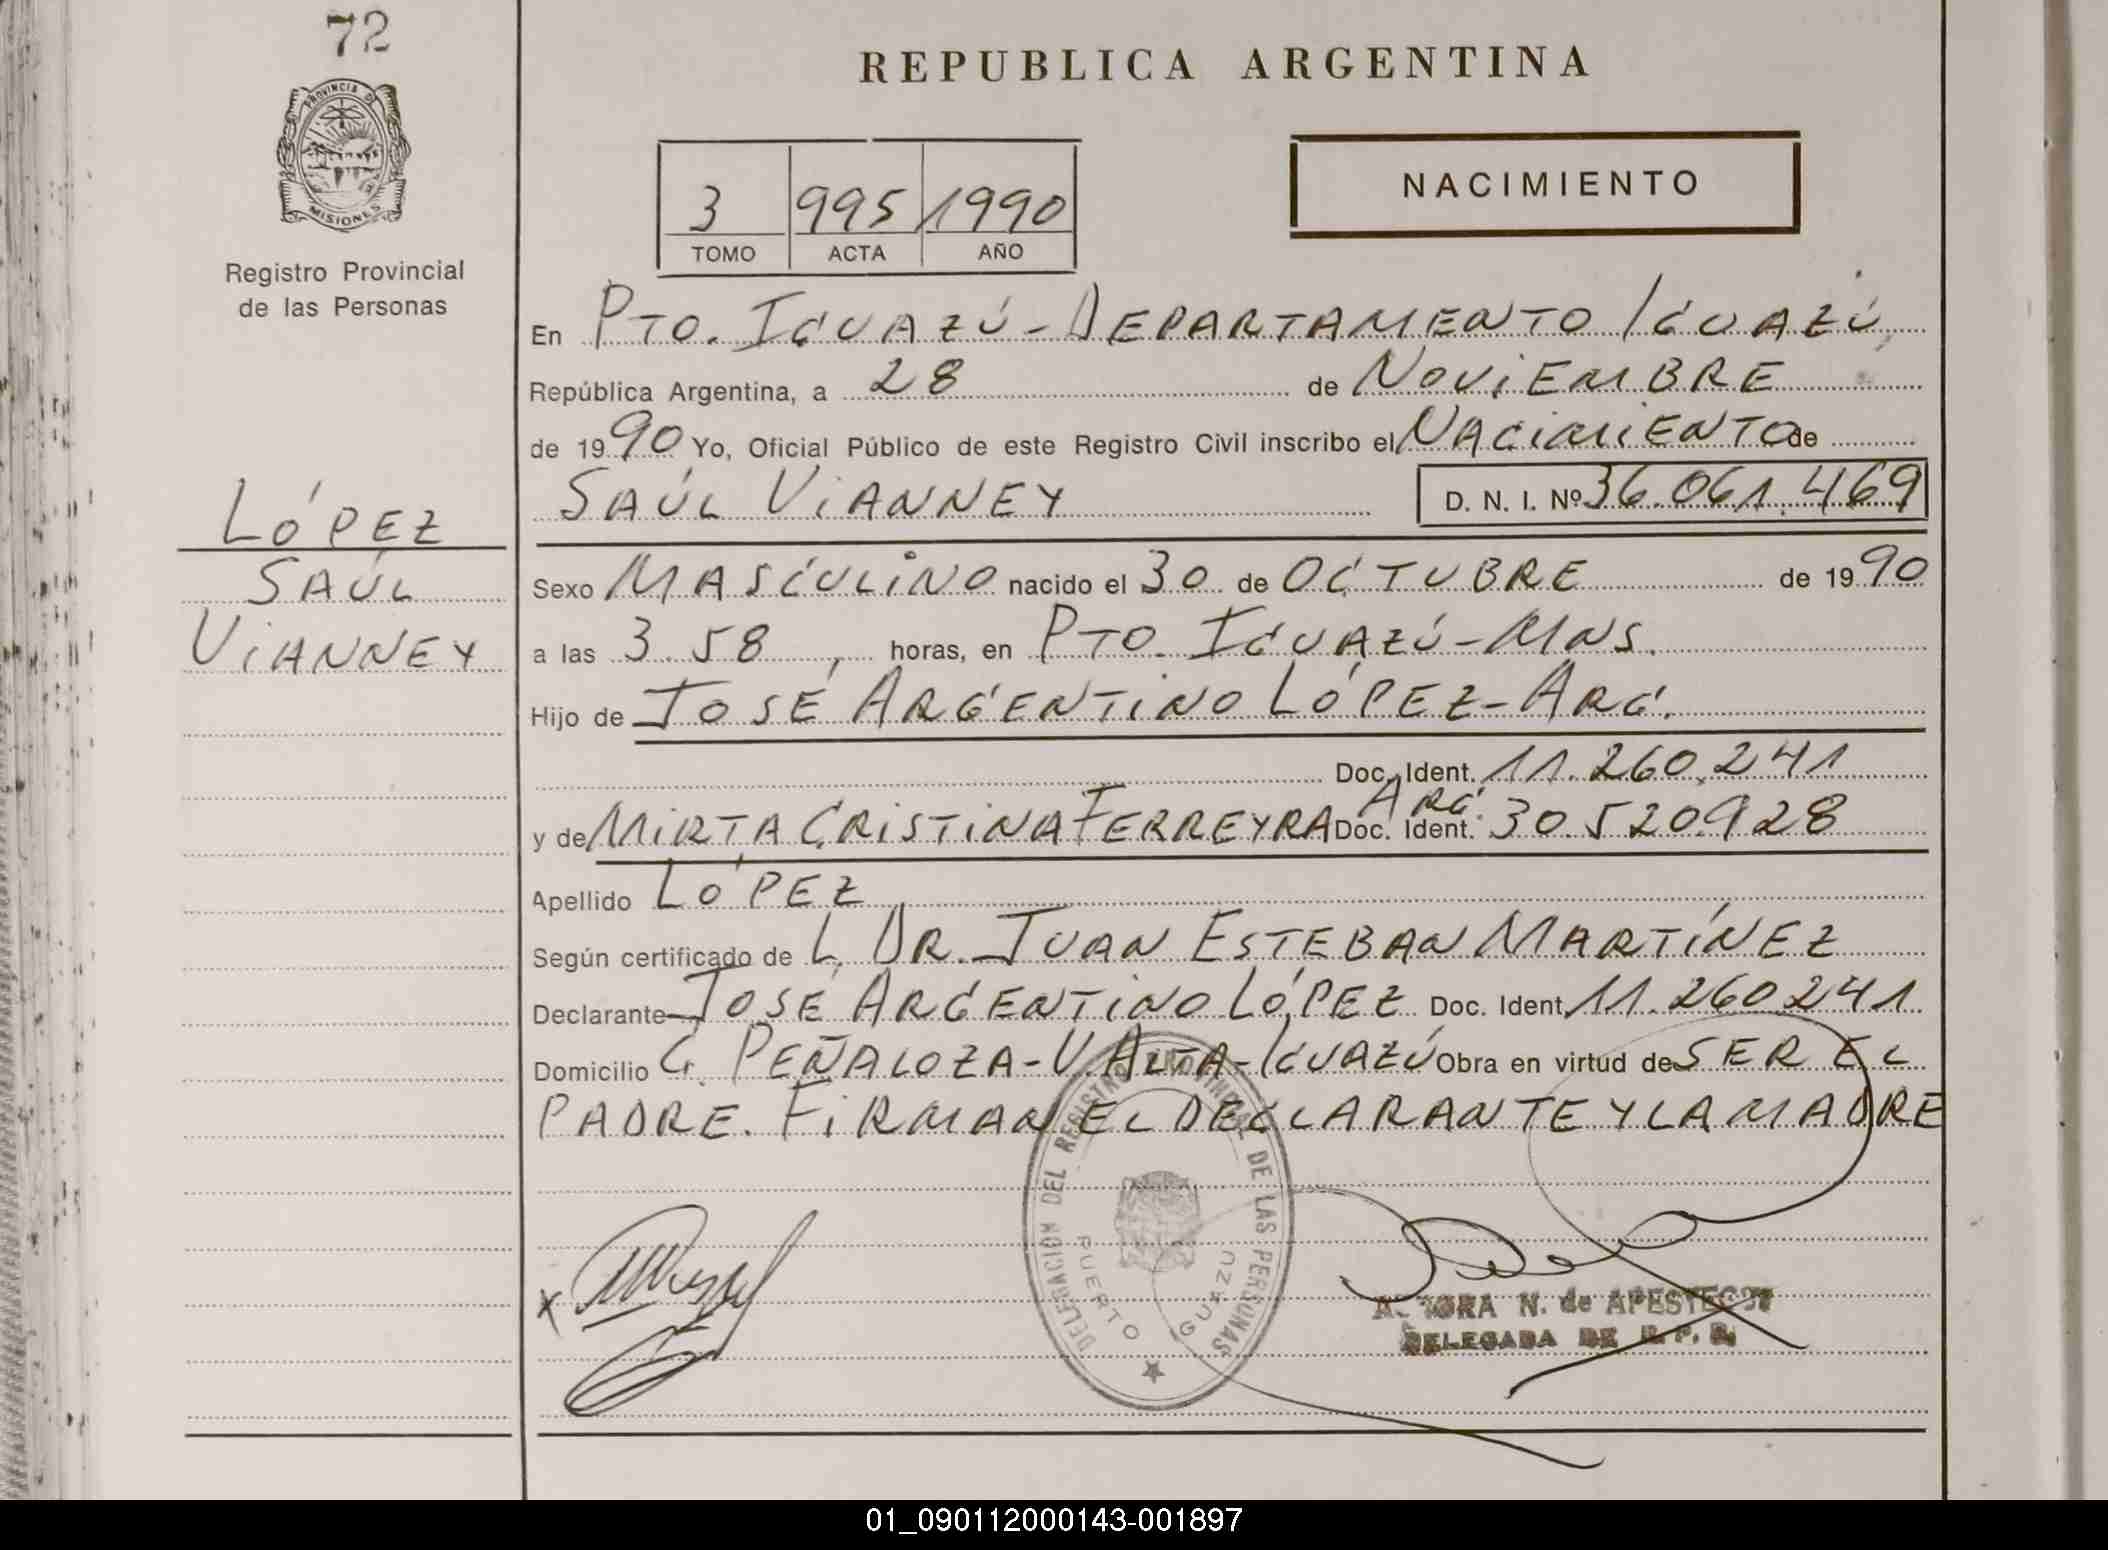 72
PROVINCIA D
MISIONES
Registro Provincial
de las Personas
LÓPEZ
SAÚL
VIANNEY
REPUBLICA ARGENTINA
3 995 1990
TOMO ACTA AÑO
NACIMIENTO
En PTO. IGUAZÚ - DEPARTAMENTO IGUAZÚ,
República Argentina, a 28 de NOVIEMBRE
de 1990 Yo, Oficial Público de este Registro Civil inscribo el NACIMIENTO de
SAÚL VIANNEY D. N. I. Nº 36.061.469
Sexo MASCULINO nacido el 30 de OCTUBRE de 1990
a las 3.58, horas, en PTO. IGUAZÚ - MNS.
Hijo de JOSÉ ARGENTINO LÓPEZ - ARG.
Doc. Ident. 11.260.241
y de MIRTA CRISTINA FERREYRA ARG. Doc. Ident. 30.520.928
Apellido LÓPEZ
Según certificado de L. DR. JUAN ESTEBAN MARTÍNEZ
Declarante JOSÉ ARGENTINO LÓPEZ Doc. Ident. 11.260.241
Domicilio C. PEÑALOZA - V. ALTA - IGUAZÚ Obra en virtud de SER EL
PADRE. FIRMAN EL DECLARANTE Y LA MADRE
DELEGACION DEL REGISTRO PROVINCIAL DE LAS PERSONAS
PUERTO IGUAZU
X
N. de
DELEGADA DE R. P. P.
01_090112000143-001897